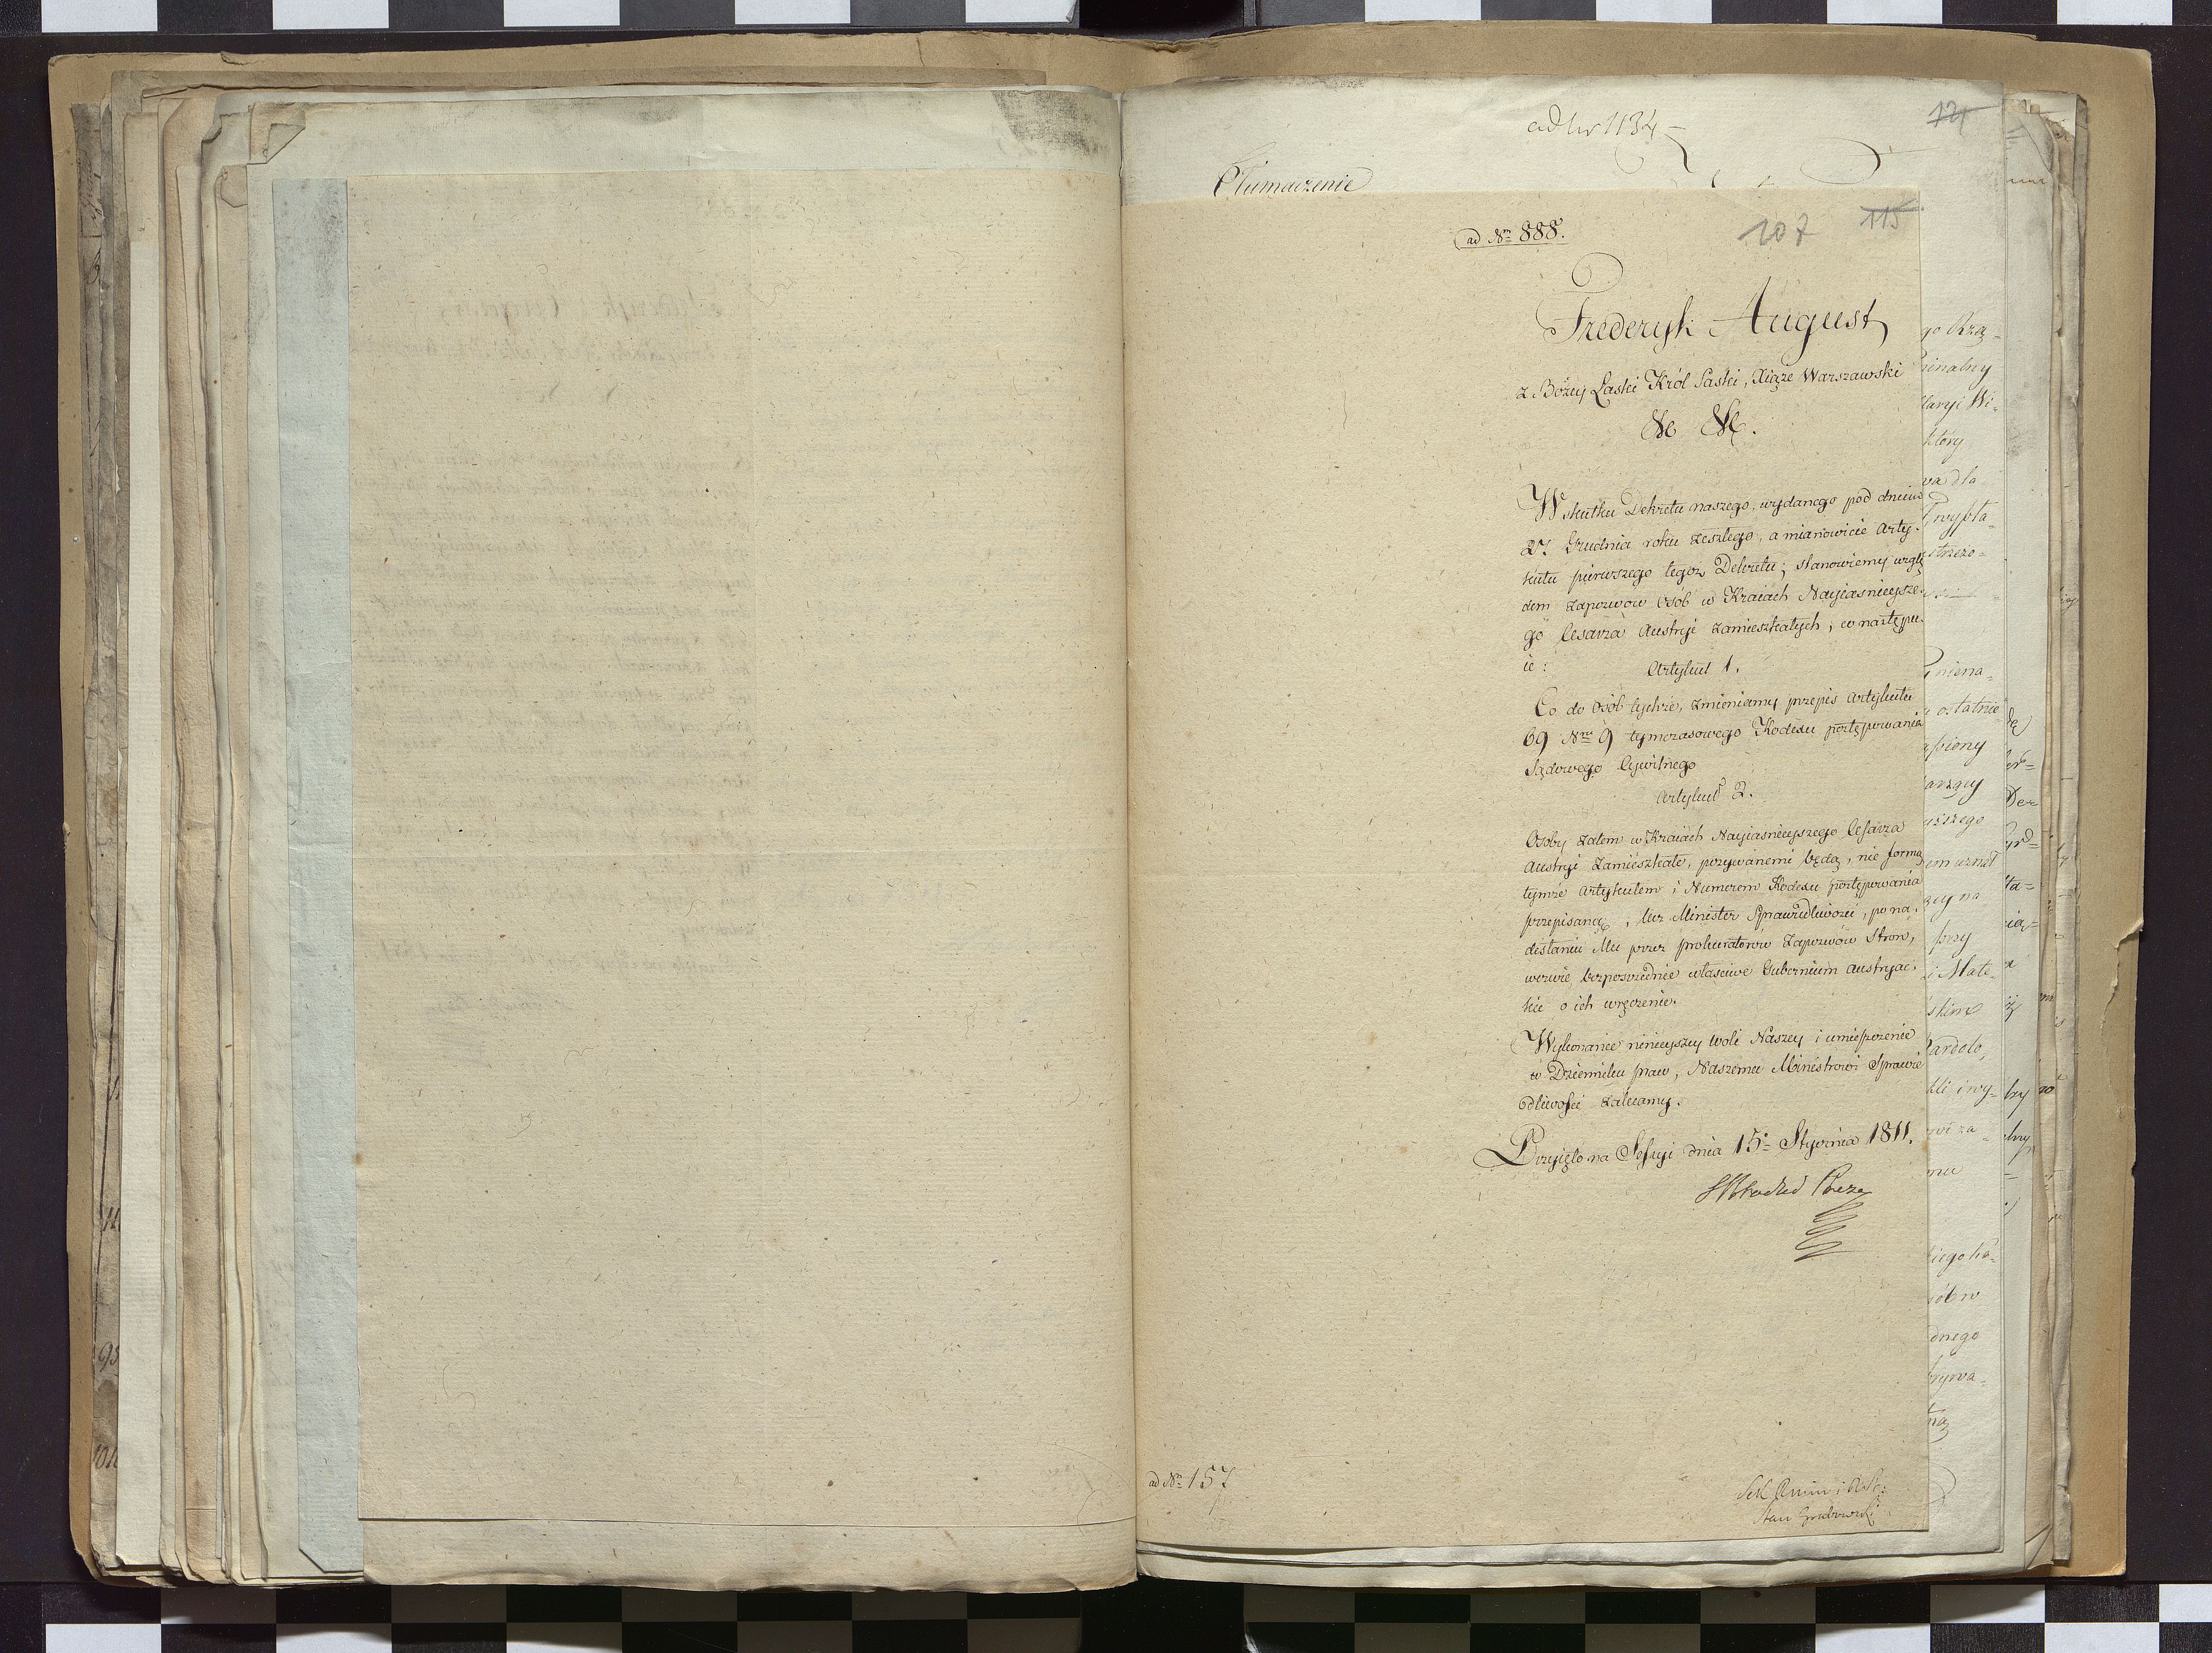 ad Nr 1134
121
Tłumaczenie
ad Nro 888.
107
115
Frederyk August
z Bożey Łaski Król Saski, Xiąże Warszawski
&c &c.
W skutku Dekretu naszego, wydanego pod dniem
27. Grudnia roku zeszłego, a mianowicie Arty-
kułu pierwszego tegoż Dekretu; stanowiemy wzglę
dem zapozwów Osób w Kraiach Nayiasnieysze-
go Cesarza Austryi zamieszkałych, co następu-
ie:
Artykuł 1.
Co do Osób tychże, zmieniamy przepis Artykułu
69 Nro 9 tymczasowego Kodexu postępowania
Sądowego Cywilnego
Artykuł 2.
Osoby zatem w Kraiach Nayiasnieyszego Cesarza
Austryi zamieszkałe, pozywanemi będą, nie formą
tymże Artykułem i Numerem Kodexu postępowania
przepisaną, lecz Minister Sprawiedliwości, po na-
desłaniu Mu przez prokuratorów zapozwów stron,
wezwie bezposrednie właściwe Gubernium Austryac-
kie o ich wręczenie.
Wykonanie ninieyszey woli Naszey i umieszczenie
w Dzienniku praw, Naszemu Ministrowi Sprawie
dliwości zalecamy.
Przyięto na Sessyi dnia 15. Stycznia 1811.
ad Nro 157
go Rzą-
który
wa dla
ostatnie
przy
i Mate-
dnego